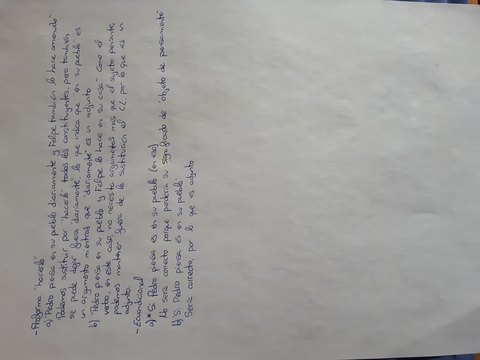 - Proforma "hacerlo"
a) Pedro piensa en su pueblo diariamente y Felipe también lo hace
Podemos sustituir por "hacerlo" todos los constituyentes, pero también
se puede dejar fuera "diariamente", lo que indica que "en su pueblo" es
un argumento mientras que "diariamente" es un adjunto
b) Pedro piensa en su pueblo y Felipe lo hace en su casa. Como el
verbo, en este caso, no necesita argumentos más que el sujeto pensante,
podemos mantener fuera de la sustitución el CL, por lo que es un
adjunto.
- Ecuandicional
a) * Si Pedro piensa es en su pueblo (en ese)
No sería correcto porque perdería su significado de "objeto de pensamiento"
b) Si Pedro piensa es en su pueblo
Sería correcta, por lo que es adjunto